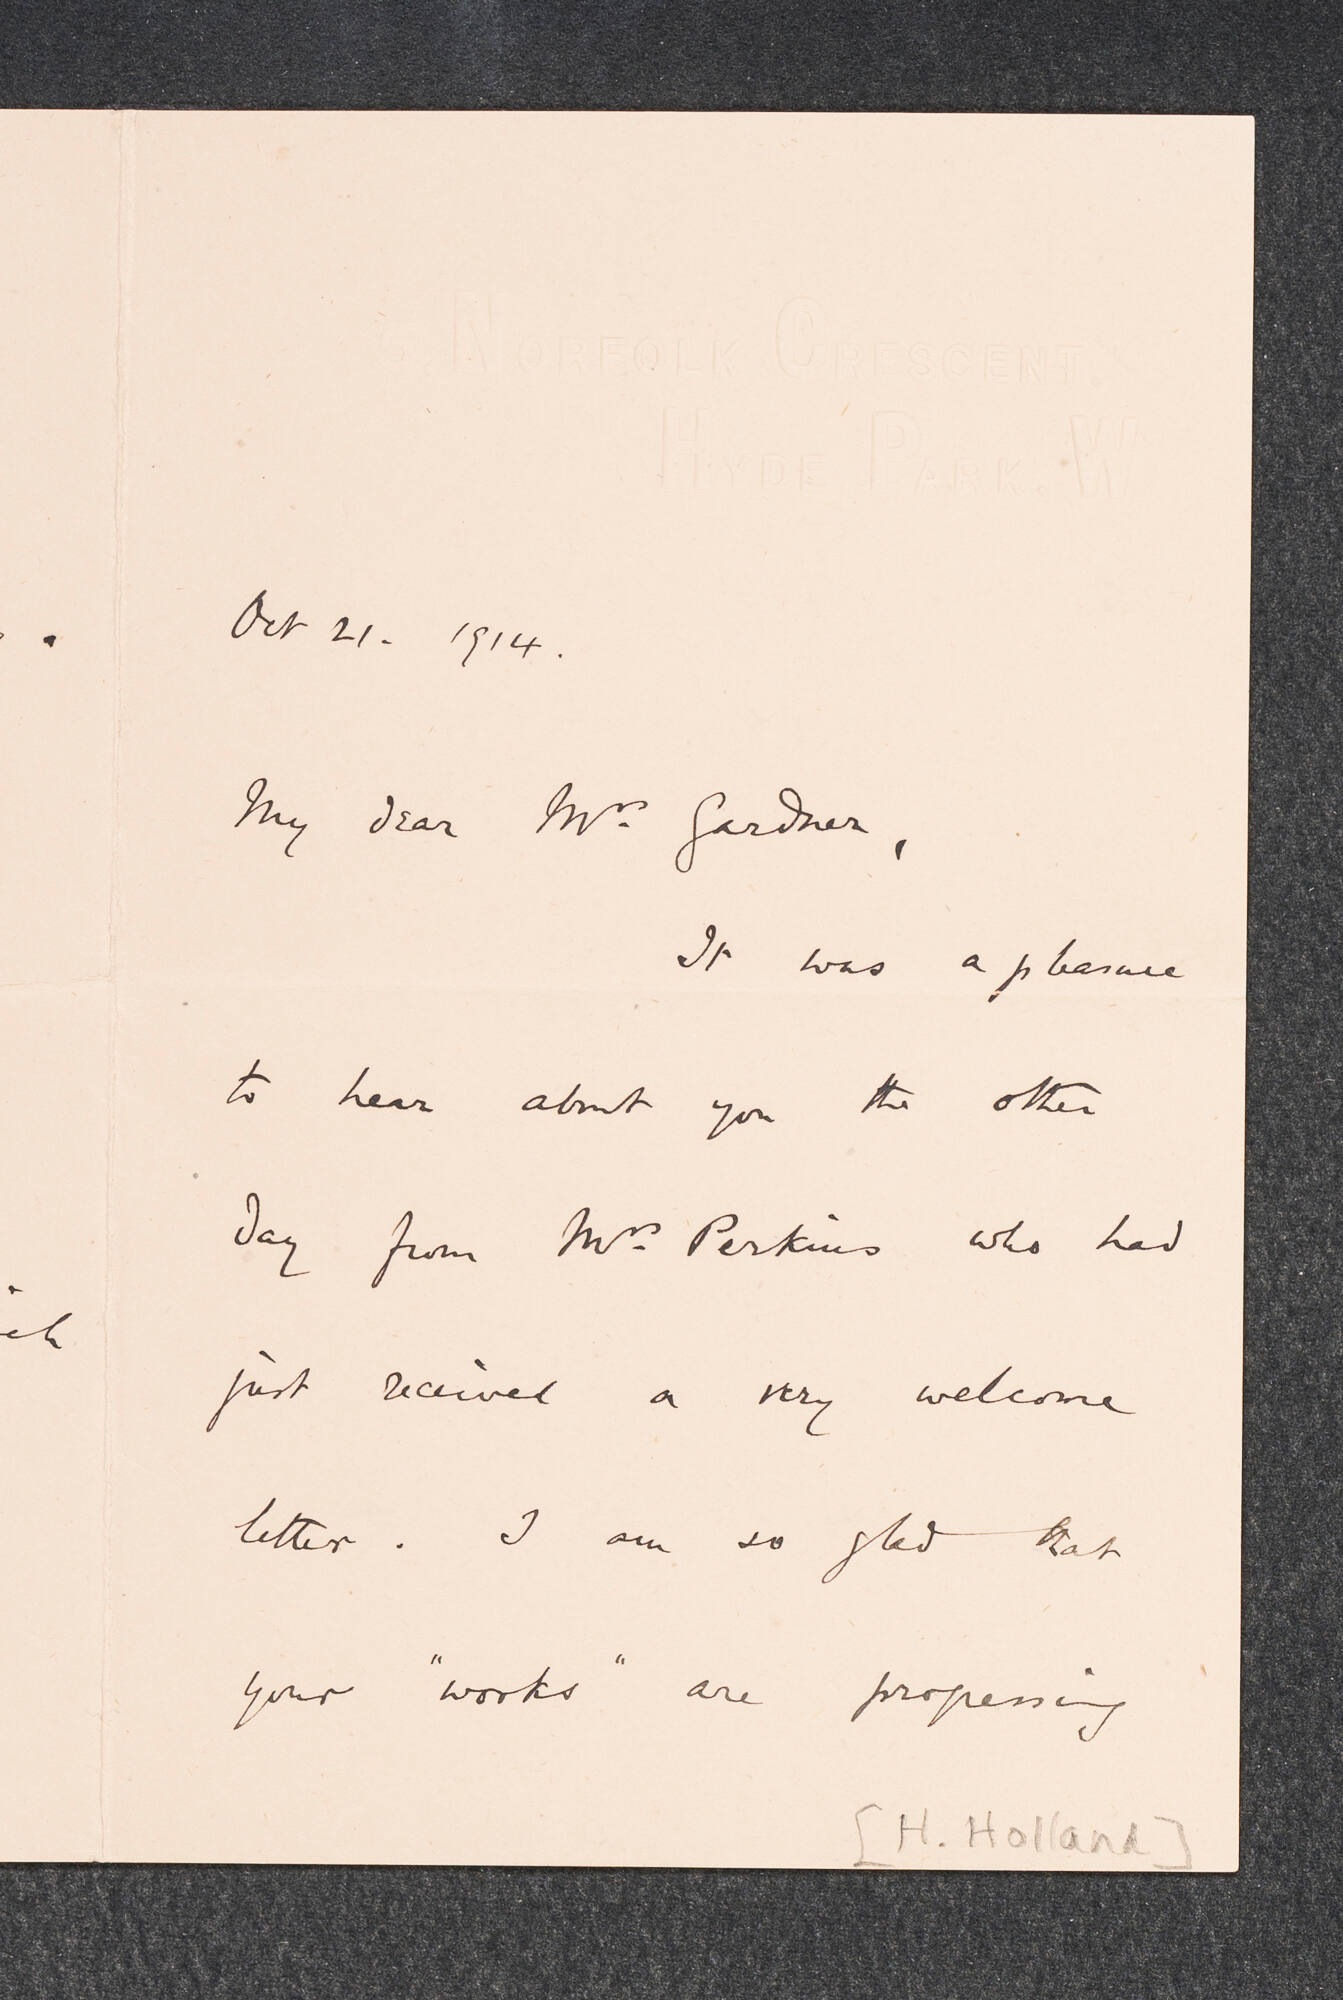 5, NORFOLK CRESCENT.
HYDE PARK. W
Oct 21. 1914.
My dear Mrs. Gardner,
It was a pleasure
to hear about you the other
day from Mrs. Perkins who had
just received a very welcome
letter. I am so glad that
your "works" are progressing
[H. Holland]